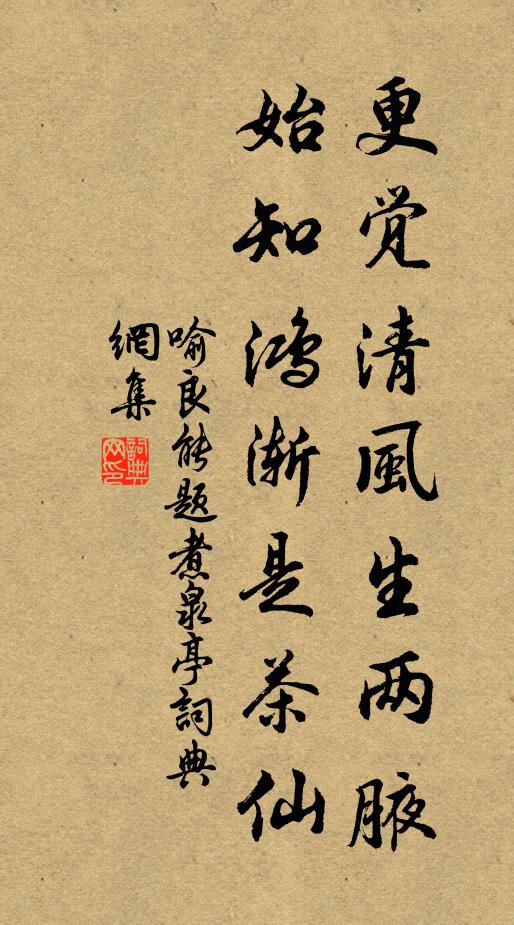 更覺清風生两腋
始知鴻漸是茶仙
喻良能題煮泉亭詞典
網集
詞典
网印